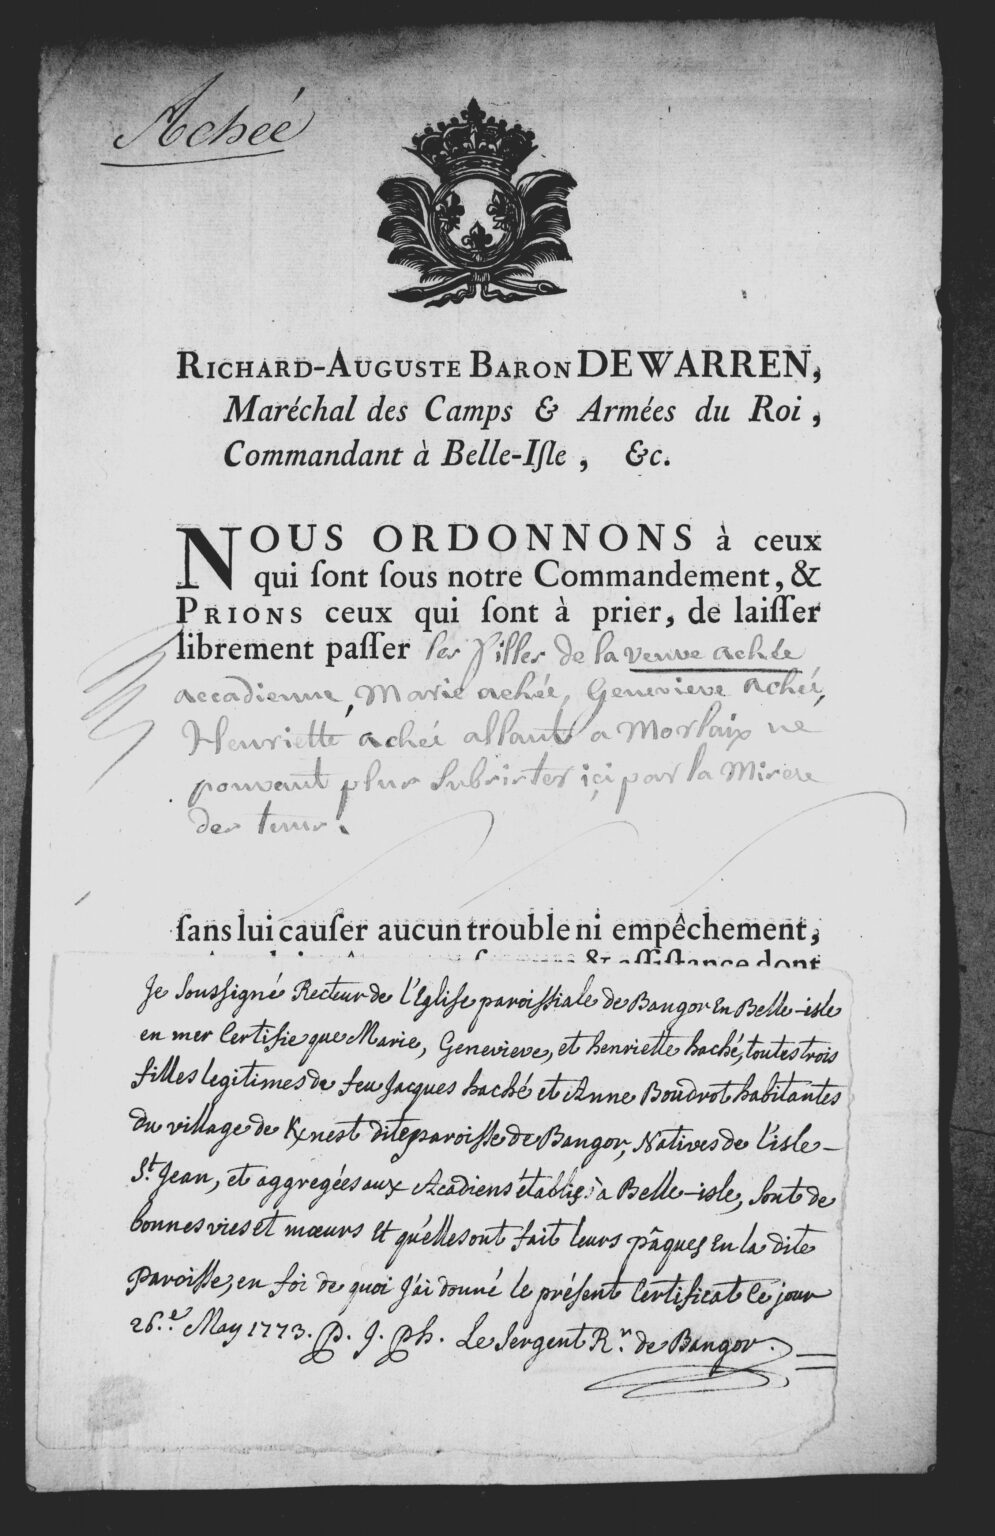 Achée
RICHARD-AUGUSTE BARON DE WARREN,
Maréchal des Camps & Armées du Roi,
Commandant à Belle-Iſle, &c.
NOUS ORDONNONS à ceux
qui ſont ſous notre Commandement, &
PRIONS ceux qui ſont à prier, de laiſſer
librement paſſer les filles de la veuve achée
accadienne, Marie achée, Genevieve achée,
Henriette achée allant a Morlaix ne
pouvant plus subsister içi par la Misere
des tems.
ſans lui cauſer aucun trouble ni empêchement,
& aſſiſtance dont
Je Soussigné Recteur de l'Eglise paroissiale de Bangor En Belle-isle
en mer Certifie que Marie, Genevieve, et henriette haché, toutes trois
filles legitimes de feu Jacques haché et Anne Boudrot habitantes
du village de Kxnest dite paroisse de Bangor, Natives de l'isle-
St. Jean, et aggregées aux Acadiens établis à Belle-isle, Sont de
bonnes vies et mœurs Et qu'elles ont fait leurs pâques En la dite
Paroisse, en foi de quoi J'ai donné le présent Certificat Ce jour
26.e May 1773. P. J. Ph. Le Sergent Rr. de Bangor.